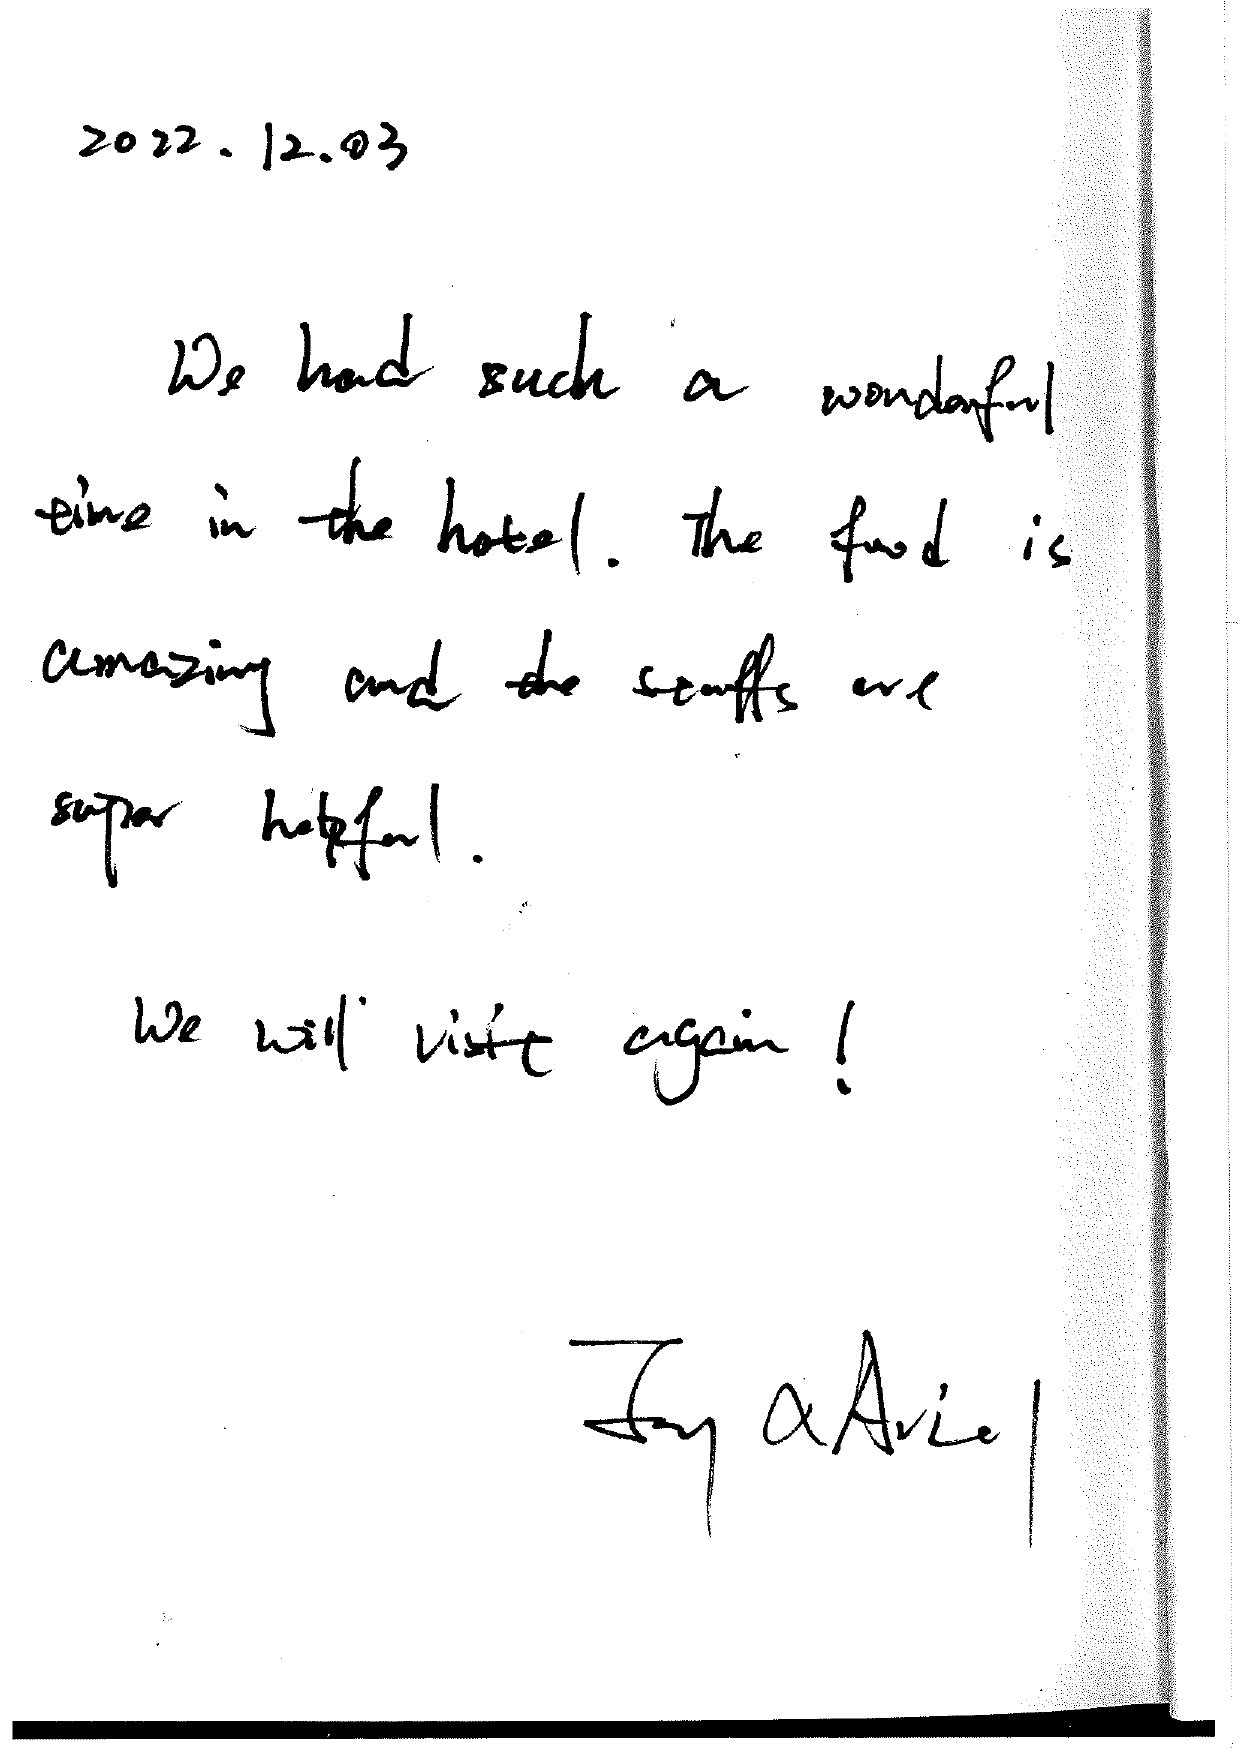 2022.12.03
We had such a wonderful
time in the hotel. The food is
amazing and the staffs are
super helpful.
We will visit again!
Joy & Ariel